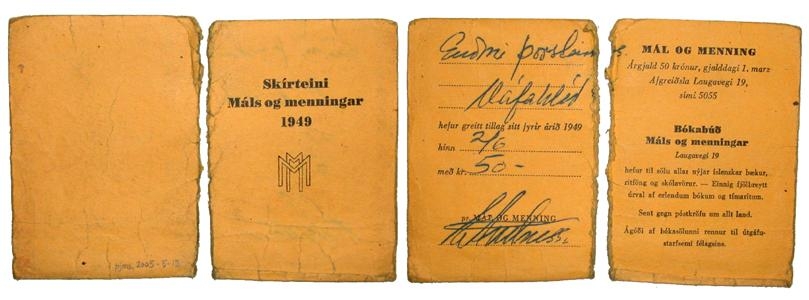 pjms. 2005-5-12
Skírteini
Máls og menningar
1949
MM
Guðni Þorsteins
hefur greitt tillag sitt fyrir árið 1949
hinn 2/6
með kr. 50-
pr. MÁL OG MENNING
MÁL OG MENNING
Árgjald 50 krónur, gjalddagi 1. marz
Afgreiðsla Laugavegi 19,
sími 5055
Bókabúð
Máls og menningar
Laugavegi 19
hefur til sölu allar nýjar íslenzkar bækur,
ritföng og skólavörur. — Einnig fjölbreytt
úrval af erlendum bókum og tímaritum.
Sent gegn póstkröfu um allt land.
Ágóði af bóksölunni rennur til útgáfu-
starfsemi félagsins.